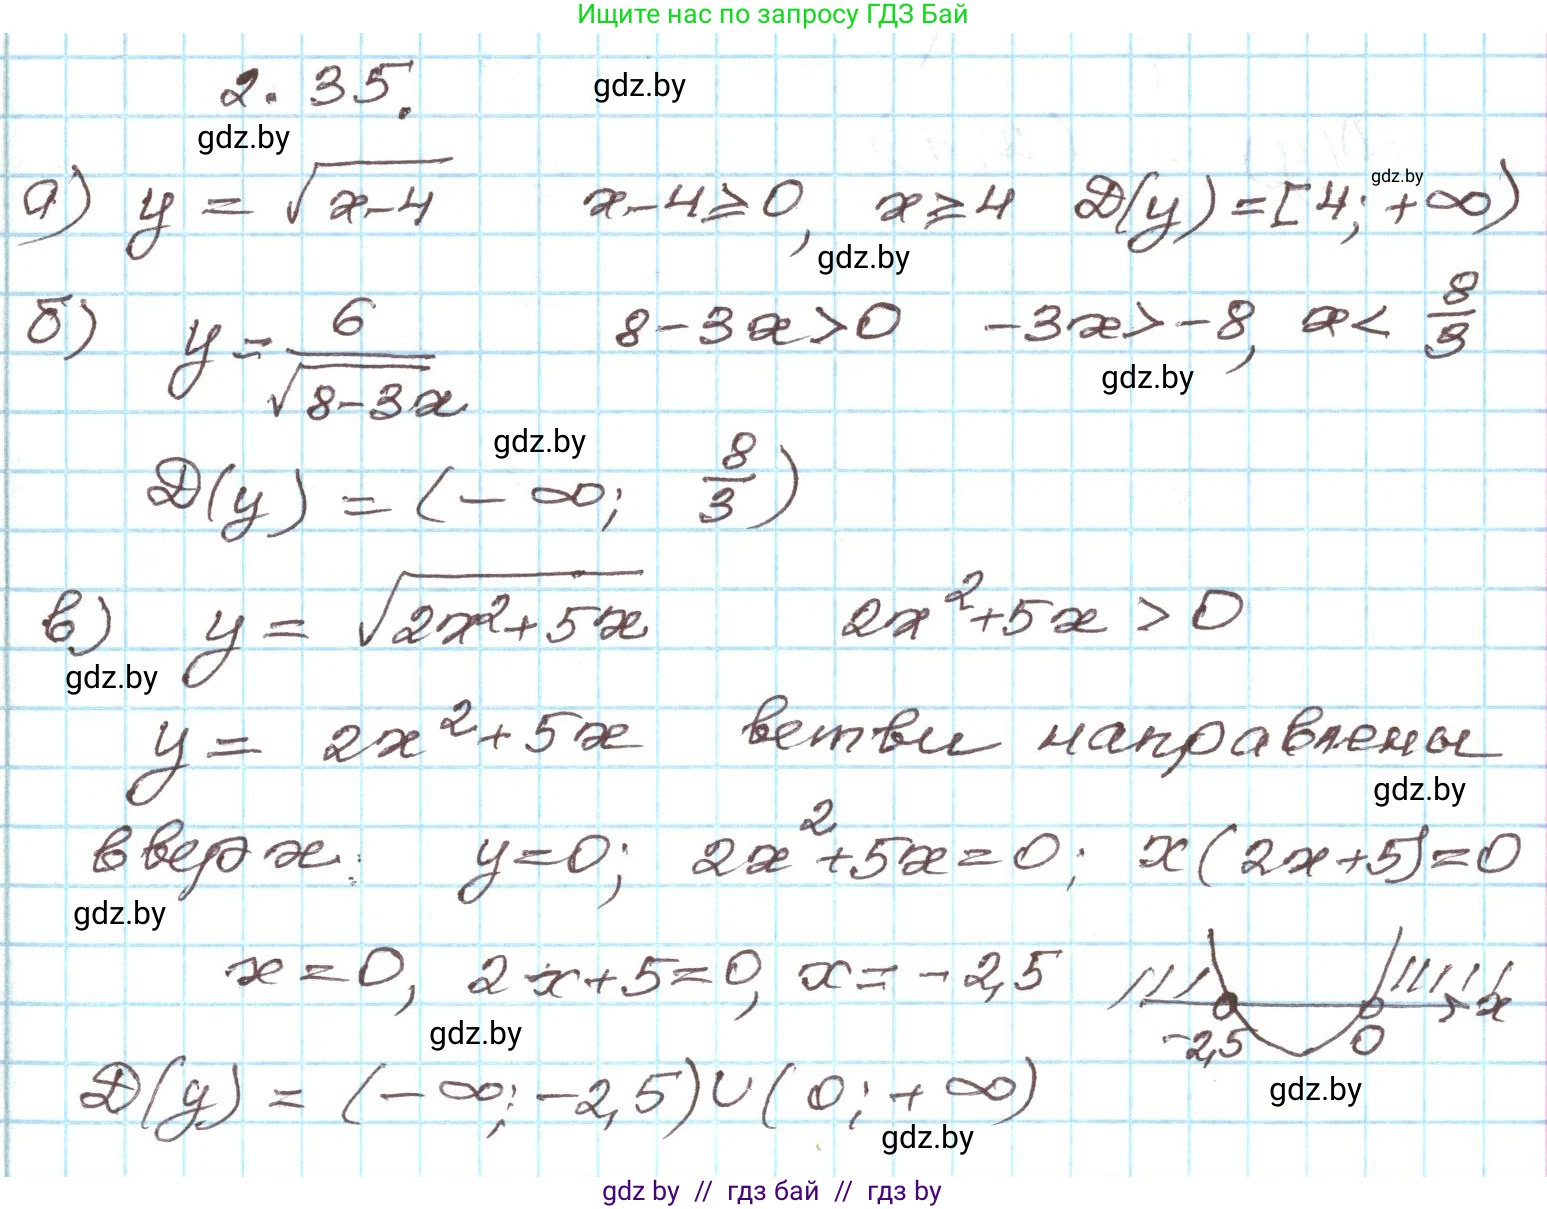 Ищите нас по запросу ГДЗ Бай
2.35. gdz.by
gdz.by
а) y = √(x-4) x-4⩾0, x⩾4 D(y)=[4; +∞) gdz.by
gdz.by
б) y = 6/√(8-3x) 8-3x>0 -3x>-8, x< 8/3
gdz.by
gdz.by
D(y) = (-∞; 8/3)
в) y = √(2x²+5x) 2x²+5x > 0
gdz.by
y = 2x²+5x ветви направлены
gdz.by
вверх: y=0; 2x²+5x=0; x(2x+5)=0
gdz.by
x=0, 2x+5=0, x=-2,5 x
gdz.by -2,5 0
D(y) = (-∞; -2,5)∪(0; +∞) gdz.by
gdz.by
gdz by // гдз бай // гдз by